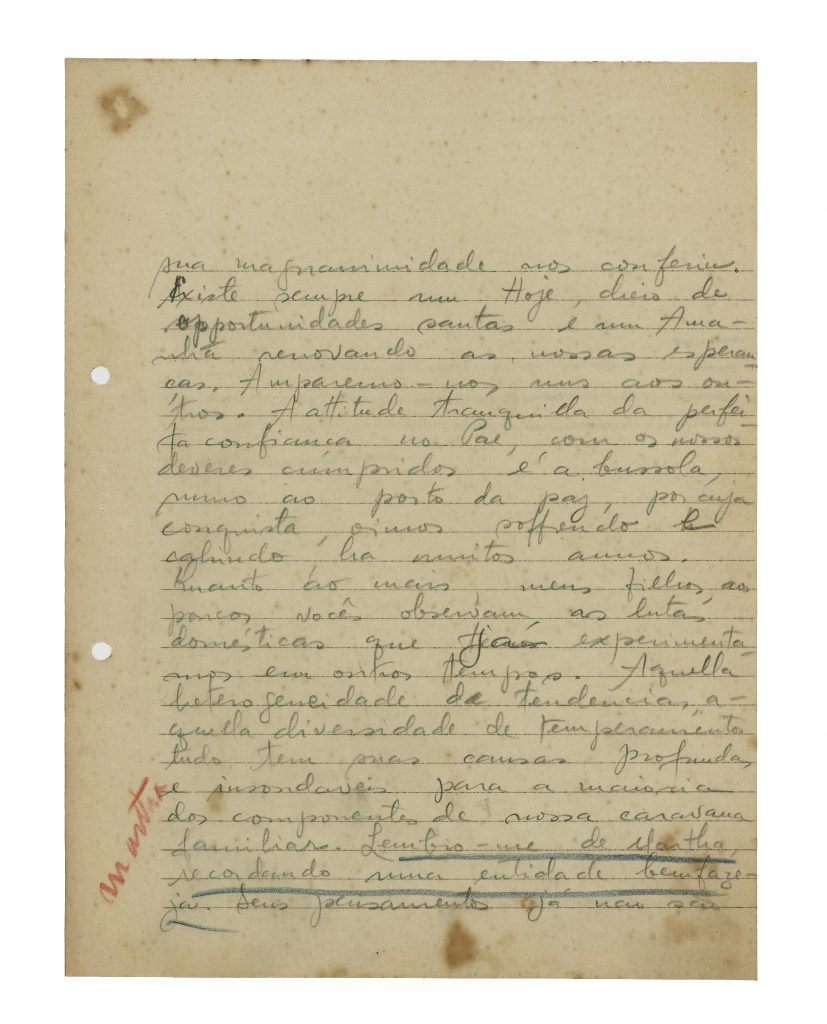 sua magnanimidade nos conferiu.
Existe sempre um Hoje, cheio de
opportunidades santas e um Ama-
nhã renovando as nossas esperan-
ças. Amparemo-nos uns aos ou-
tros. A attitude tranquilla da perfei-
ta confiança no Pae, com os nossos
deveres cumpridos é a bussola,
rumo ao porto da paz, por cuja
conquista, vimos soffrendo e
cahindo, ha muitos annos.
Quanto ao mais, meus filhos, aos
poucos vocês observam as lutas
domésticas que já experimenta-
mos em outros tempos. Aquella
heterogeneidade de tendencias, a-
quella diversidade de temperamentos
tudo tem suas causas profundas
e insondaveis para a maioria
dos componentes de nossa caravana
familiar. Lembro-me de Martha,
recordando uma entidade bemfaze-
ja. Seus pensamentos já não são
Martha